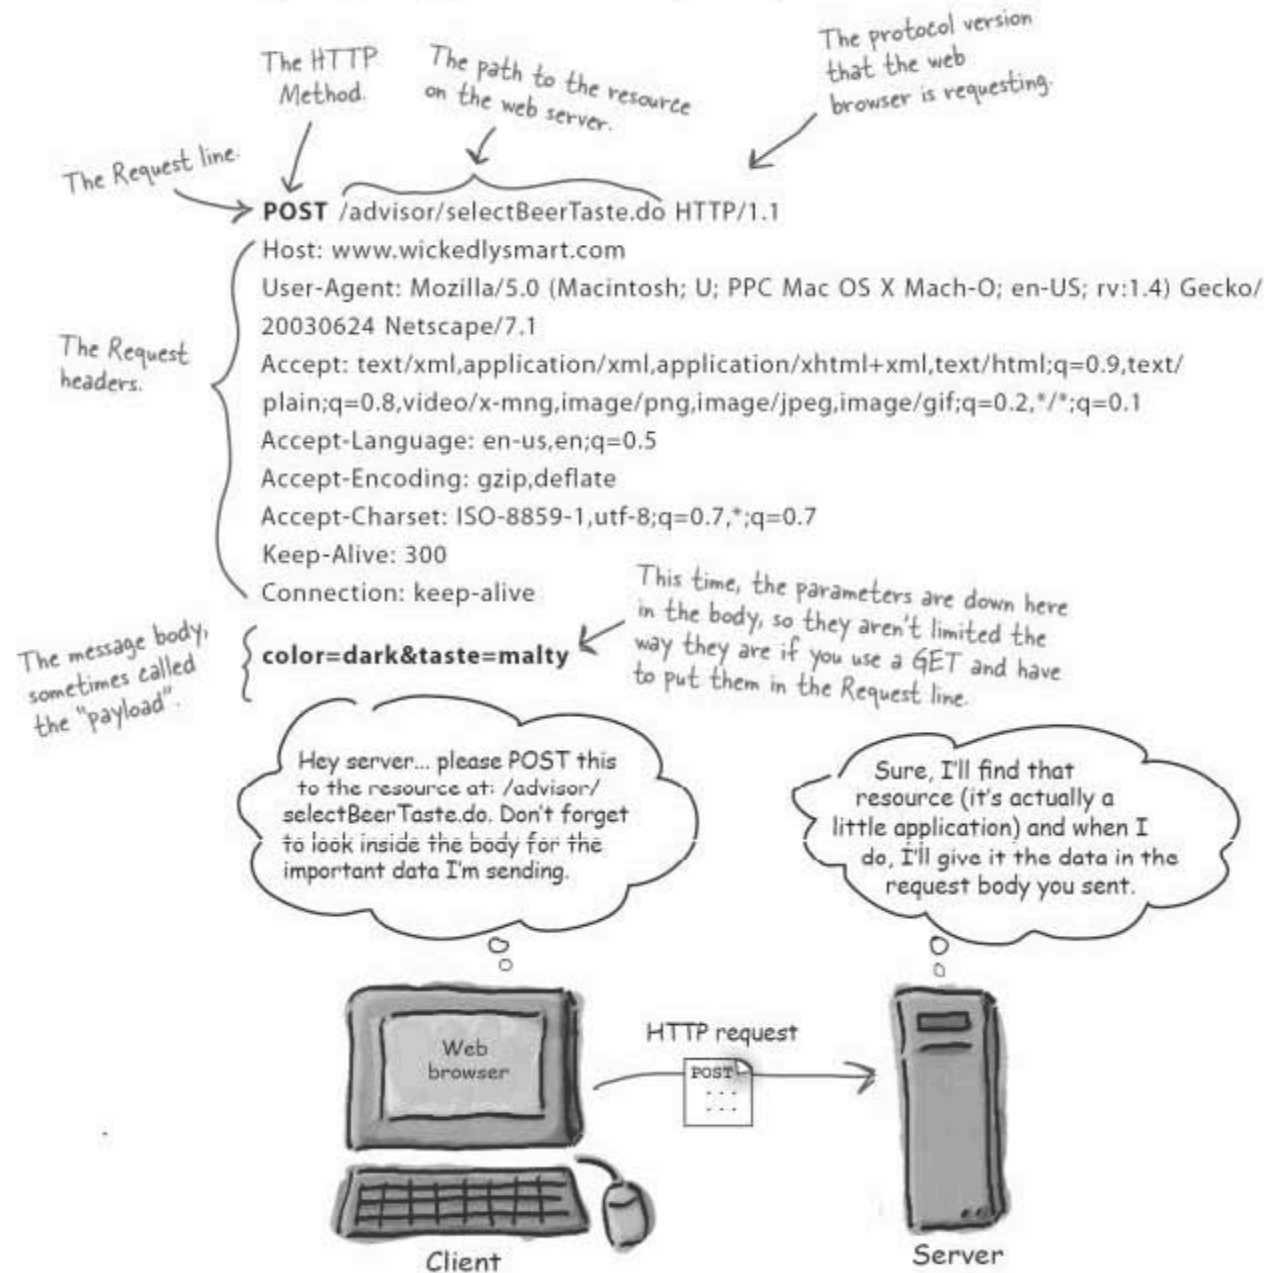 The HTTP
Method.
The path to the resource
on the web server.
The protocol version
that the web
browser is requesting.
The Request line.
POST /advisor/selectBeerTaste.do HTTP/1.1
Host: www.wickedlysmart.com
User-Agent: Mozilla/5.0 (Macintosh; U; PPC Mac OS X Mach-O; en-US; rv:1.4) Gecko/
20030624 Netscape/7.1
Accept: text/xml,application/xml,application/xhtml+xml,text/html;q=0.9,text/
plain;q=0.8,video/x-mng,image/png,image/jpeg,image/gif;q=0.2,*/*;q=0.1
Accept-Language: en-us,en;q=0.5
Accept-Encoding: gzip,deflate
Accept-Charset: ISO-8859-1,utf-8;q=0.7,*;q=0.7
Keep-Alive: 300
Connection: keep-alive
The Request
headers.
The message body,
sometimes called
the "payload".
color=dark&taste=malty
This time, the parameters are down here
in the body, so they aren't limited the
way they are if you use a GET and have
to put them in the Request line.
Hey server... please POST this
to the resource at: /advisor/
selectBeerTaste.do. Don't forget
to look inside the body for the
important data I'm sending.
Sure, I'll find that
resource (it's actually a
little application) and when I
do, I'll give it the data in the
request body you sent.
Web
browser
HTTP request
POST
. . .
. . .
Client
Server